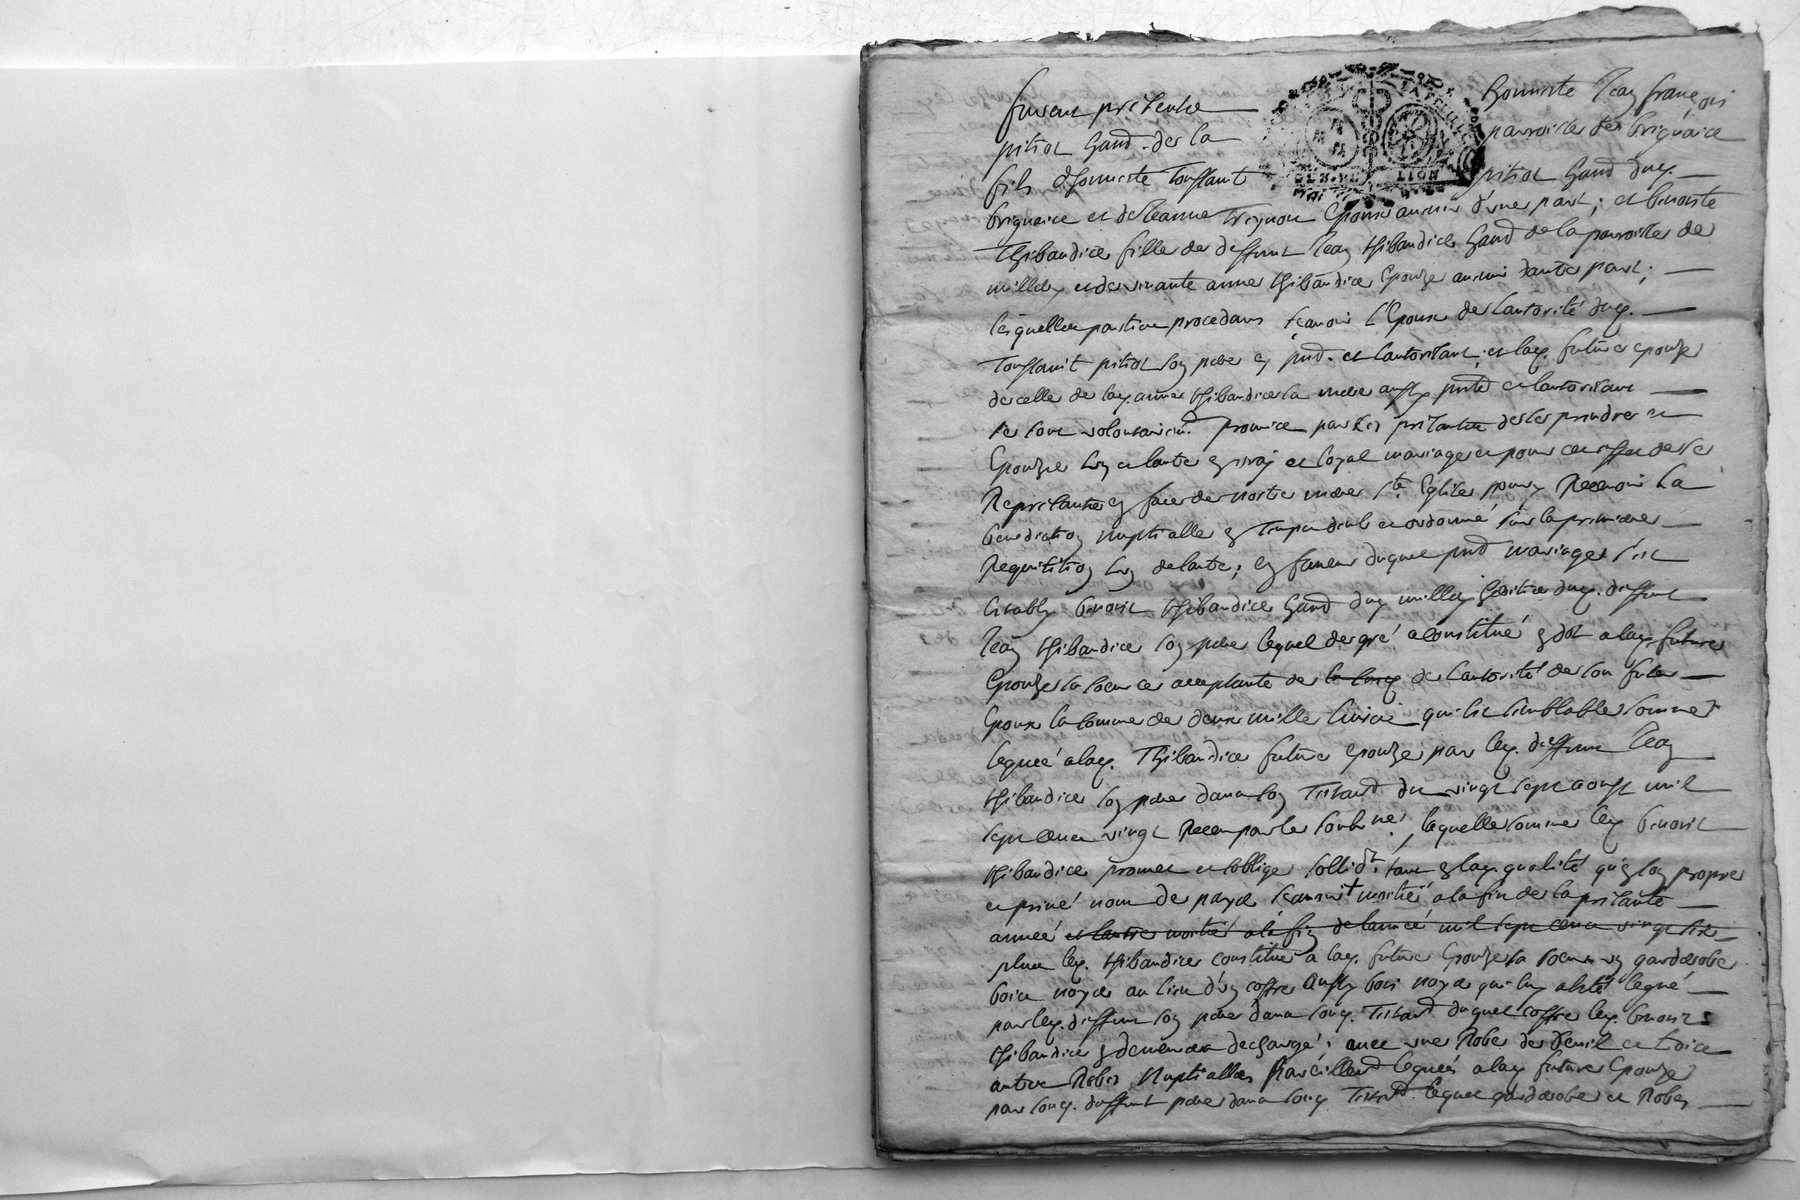 furent presents honneste Jean françois
pitiot hand. de la parroisse de brignaice
fils d'honneste Toussant pitiot hand dud.
brignaice et de Jeanne Treynou Epoux aunir d'une part; et benoiste
Thibaudier fille de deffunt Jean thibaudier hand de la parroisse de
millery et de vivante anne thibaudier Epouze aunir dautre part;
lesquelles parties procedans scavoir l'Epoux de lautorité dud.
Toussaint pitiot son pere en prnd. et lautorisant et lad. future epouze
de celle de lad. anne thibaudier sa mere aussy prnte et lautorisant
se sont volontairem. promis par les presantes de se prendre en
Epouze lun et lautre en vray et loyal mariage et pour cet effet de se
Representer en face de nostre mere ste Eglise pour y Recevoir la
benediction Nuptialle en Temps deub et ordonné sur la premiere
Requisition lun de lautre; en faveur duquel prnd mariage s'est
Estably benoist thibaudier hand dud millery heritier dud. deffunt
Jean thibaudier son pere lequel de gré a constitué en dot a lad. future
Epouze sa soeur ce acceptante de lautorité de son futur
Epoux la somme de deux mille livres qui est semblable somme
leguée a lad. Thibaudier future epouze par led. deffunt Jean
thibaudier son pere dans son Testamt du vingt sept aoust mil
sept cens vingt Receu par le soub.né, laquelle somme led benoist
thibaudier promet et soblige sollid.t tant en lad. qualité qu'en son propre
et privé nom de payer scavoir + moitié a la fin de la presante
année et lautre moitié a la fin de lannée mil sept cens vingt six
plus led. thibaudier constitue a lad. future Epouze sa soeur un garderobe
bois noyer au lieu d'un coffre aussy bois noyer qui luy a esté legué
par led. deffunt son pere dans sond. Testamt duquel coffre led. benoist
thibaudier en demeurera dechargé; avec une Robe de deuil et trois
autres Robes Nuptialles pareillemt leguées a lad future Epouze
par sond. deffunt pere dans sond Testamt. lequel garderobe et Robes